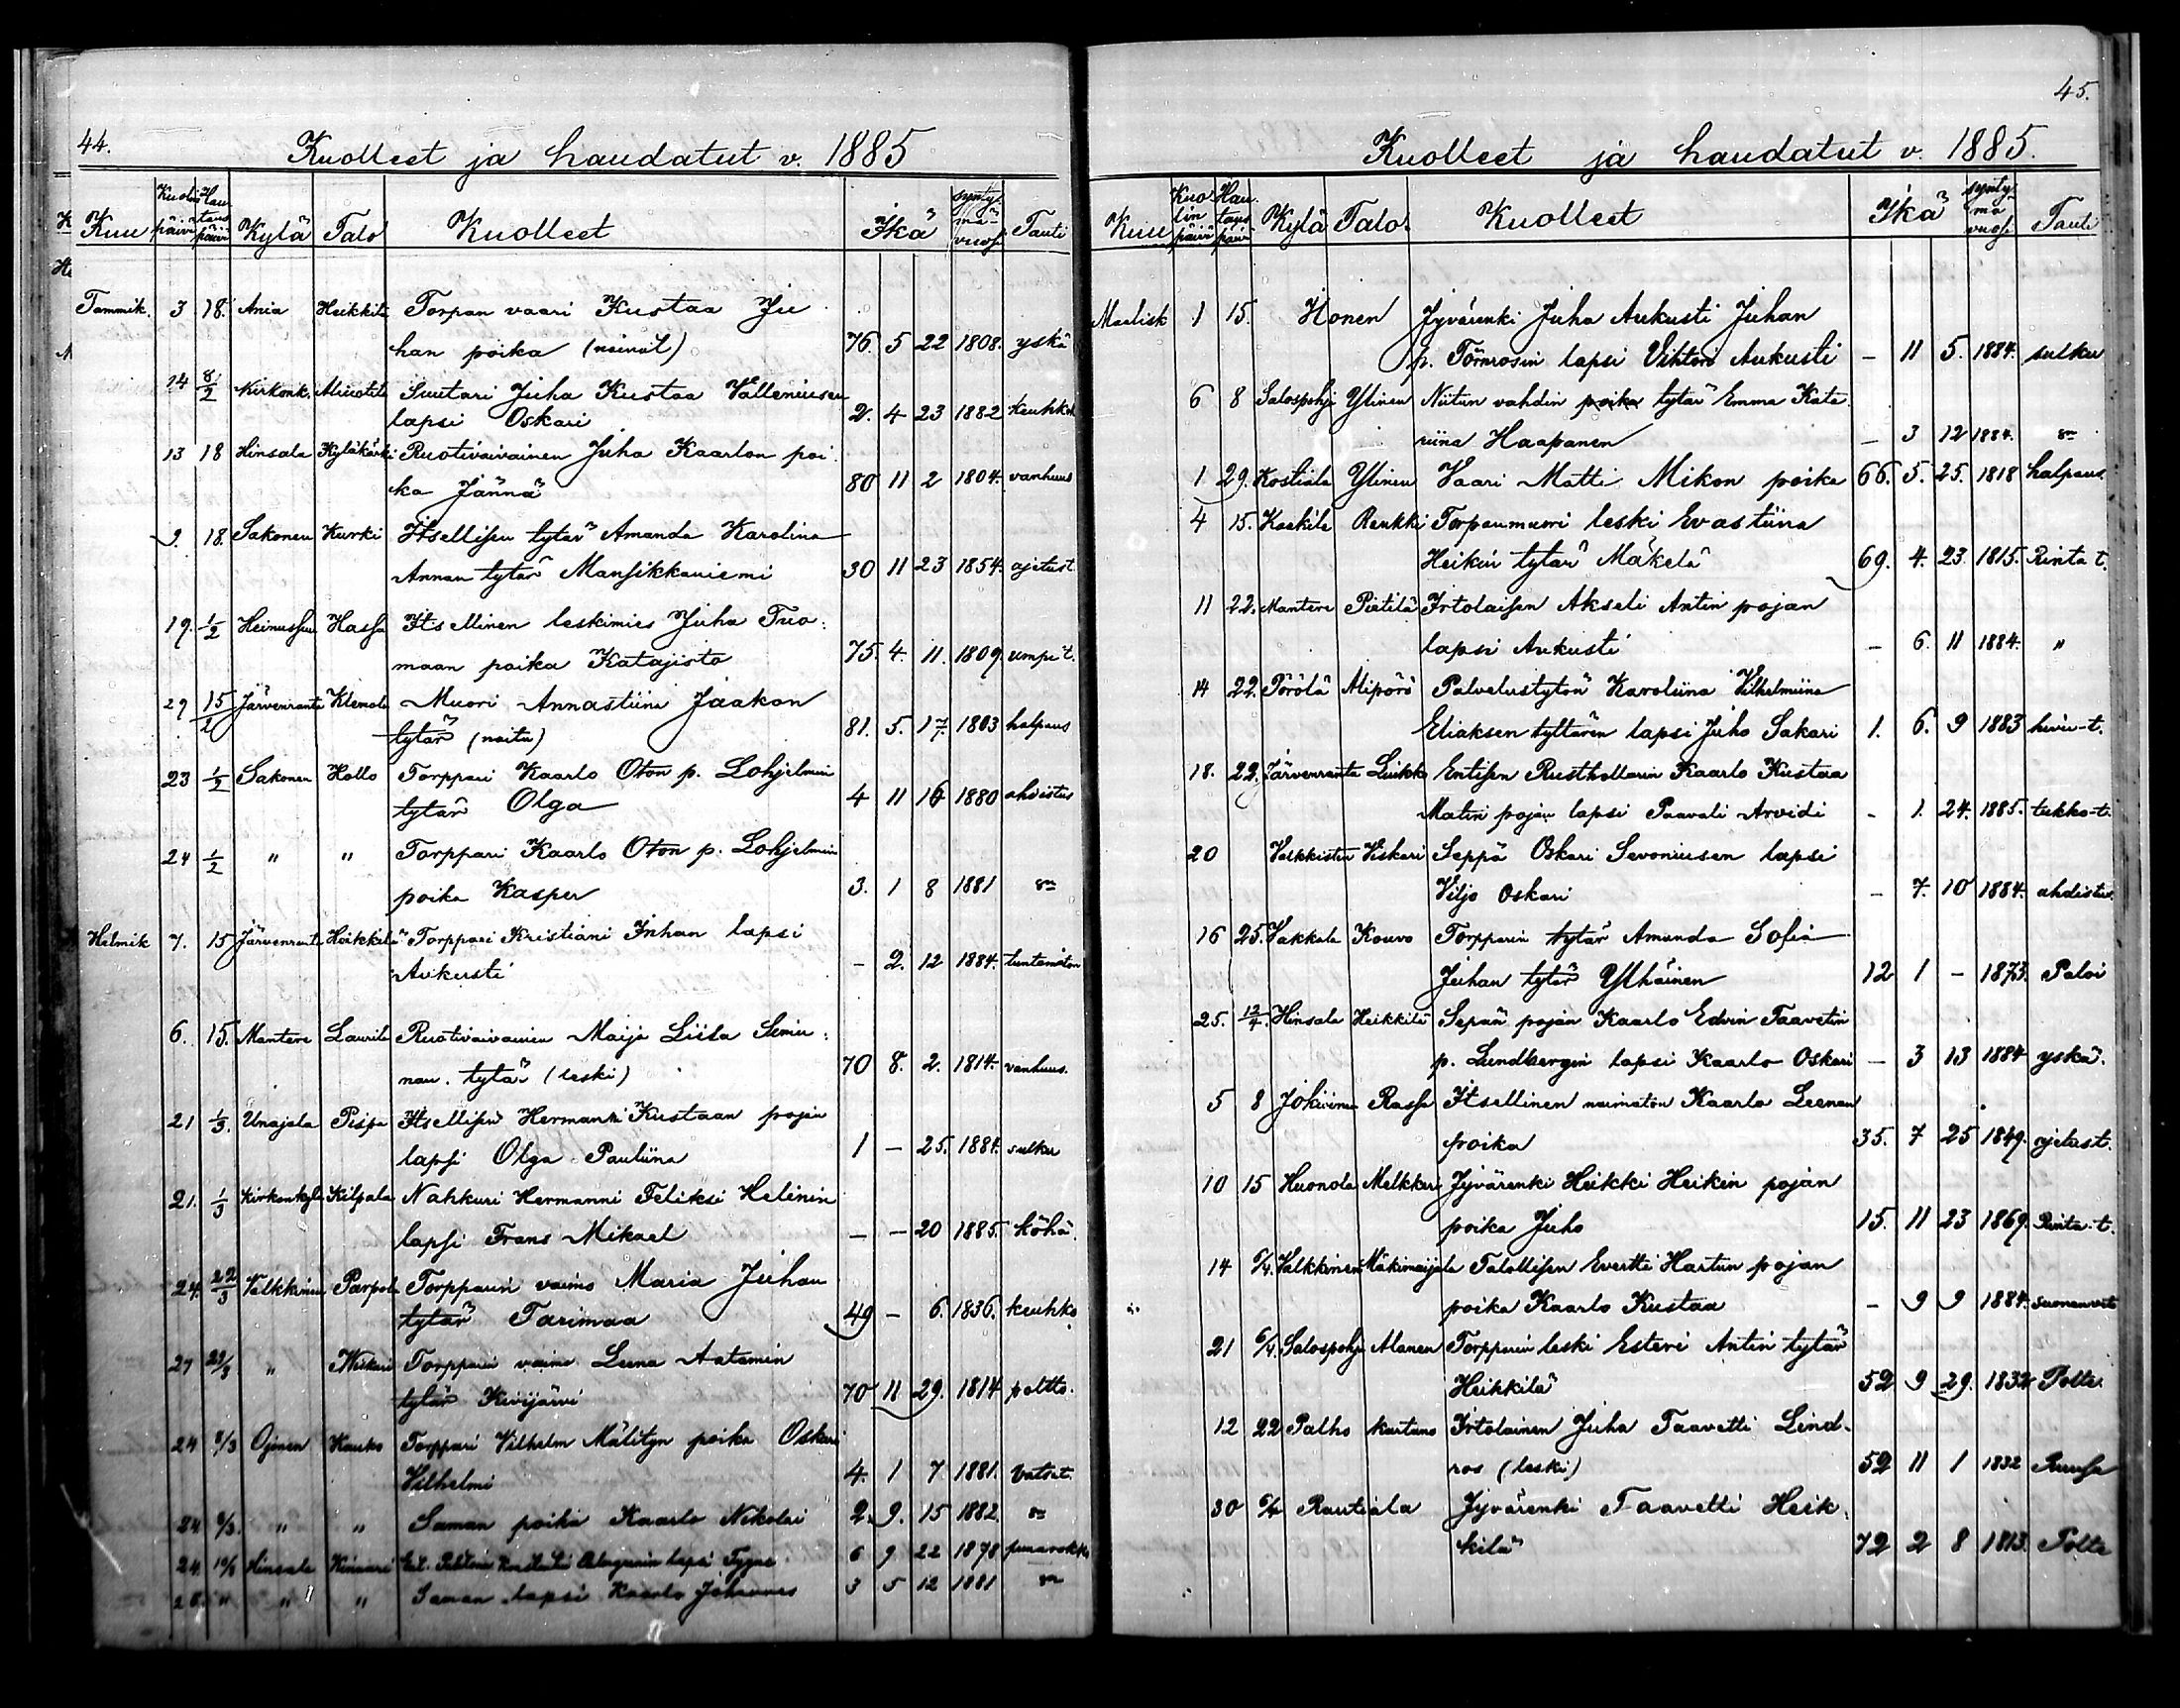 44.
Kuolleet ja haudatut v. 1885
Kuu Kuolin päivä Hautaus päivä Kylä Talo Kuolleet Ikä syntymä vuosi Tauti
Tammik. 3 18. Ania Heikkilä Torpan vaari Kustaa Ju
han poika (nainut) 76. 5 22 1808. yskä
14 8/2 Kirkonk. Suutari Juha Kustaa Valleniusen
lapsi Oskari 2. 4 23 1882 keuhko
13 18 Hinsala Ruotivaivainen Juha Kaarlon poi
ka Jännä 80 11 2 1804. vanhuus
9. 18. Sakonen Kurki Itsellisen tytär Amanda Karolina
Annan tytär Mansikkaniemi 30 11 23 1854. ajetust.
19. 1/2 Heinussuu Hassa Itsellinen leskimies Juha Tuo:
maan poika Katajisto 75. 4. 11. 1809. umpi t.
29 15/2 Järvenranta Klemola Muori Annastiina Jaakon
tytär (naitu) 81. 5. 17. 1803 halpaus
23 1/2 Sakonen Hollo Torppari Kaarlo Oton p. Lohjelmin
tytär Olga 4 11 16 1880 ahdistus
24 1/2 " " Torppari Kaarlo Oton p. Lohjelmin
poika Kasper 3. 1 8 1881 sm
Helmik 7. 15 Järvenranta Heikkilä Torppari Kristiani Juhan lapsi
Aukusti - 2. 12 1884. tuntematon
6. 15. Mantere Laurila Ruotivaivainen Maija Liisa Simu:
nan. tytär (leski) 70 8. 2. 1814. vanhuus.
21 1/3. Unajala Pispa Itsellisen Hermanni Kustaan pojan
lapsi Olga Pauliina 1 - 25. 1884. sulku
21. 1/3 Kirkonkylä Kilpala Nahkuri Hermanni Feliksi Helinin
lapsi Frans Mikael - - 20 1885. köhä.
24. 22/3 Valkkinen Parpola Torpparin vaimo Maria Juhan
tytär Tarimaa 49 - 6. 1836. keuhko
27 29/3 " Torpparin vaimo Leena Aatamin
tytär Kivijärvi 70 11 29. 1814 poltto.
24 8/3 Ojonen Hauko Torppari Vilhelm Mälityn poika Oskari
Vilhelmi 4. 1 7. 1881. Vatsat.
24 8/3. " " Saman poika Kaarlo Nikolai 2. 9. 15 1882. sm
24. Hinsala lapsi Tyyne 6 9 22 1878 punarokko
28. " " " Saman lapsi Kaarlo Johannes 3 5 12 1881 sm
45.
Kuolleet ja haudatut v. 1885.
Kuu Kuolin päivä Hautaus päivä Kylä Talo. Kuolleet Ikä syntymä vuosi Tauti
Maalisk 1 15. Honen Jyvärenki Juha Aukusti Juhan
p. Törnrosin lapsi Vihtori Aukusti - 11 5. 1884. sulku
6 8 Salospohja Ylinen Niitun vahdin poika tytär Emma Kata
riina Haapanen - 3 12 1884. sm
1. 29. Kostiala Ylinen Vaari Matti Mikon poika 66. 5. 25. 1818 halpaus.
4 15. Kaakila Renkki Torpanmuori leski Evastiina
Heikin tytär Mäkelä 69. 4. 23 1815. Rinta t.
11 22. Mantere Pietilä Irtolaisen Akseli Antin pojan
lapsi Aukusti - 6. 11 1884. "
14 22. Pörölä Alipörö Palvelustytön Karoliina Vilhelmiina
Eliaksen tyttären lapsi Juho Sakari 1. 6. 9 1883
18. 22. Järvenranta Luikko Entisen Rusthollarin Kaarlo Kustaa
Matin pojan lapsi Paavali Arvidi - 1. 24. 1885. tukko-t.
20 Viskari Seppä Oskari Savoniusen lapsi
Viljo Oskari - 7. 10 1884. ahdistus.
16 25. Vakkala Kouvo Torpparin tytär Amanda Sofia
Juhan tytär Ylhäinen 12 1 - 1873. Palvi
25. 12/4. Hinsala Heikkilä Sepän pojan Kaarlo Edvin Taavetin
p. Lundbergin lapsi Kaarlo Oskari - 3 13 1884 yskä.
5 8 Rassa Itsellinen naimaton Kaarlo Leenan
poika 35. 7 25 1849. ajetust.
10 15 Huonola Melkkeri Jyvärenki Heikki Heikin pojan
poika Juho 15. 11 23 1869. Rinta-t.
14 6/4. Valkkinen Mäkimaijala Talollisen Evertti Hartun pojan
poika Kaarlo Kustaa - 9 9 1884. suonenveto
21 6/4. Salospohja Alanen Torpparin leski Esteri Antin tytär
Heikkilä 52 9 29. 1832 Polte.
12 22 Palho kartano Irtolainen Juha Taavetti Lind-
ros (leski) 52 11 1 1832 Ruusu
30 6/4 Rautiala Jyvärenki Taavetti Heik.
kilä 72 2 8 1813. Polte